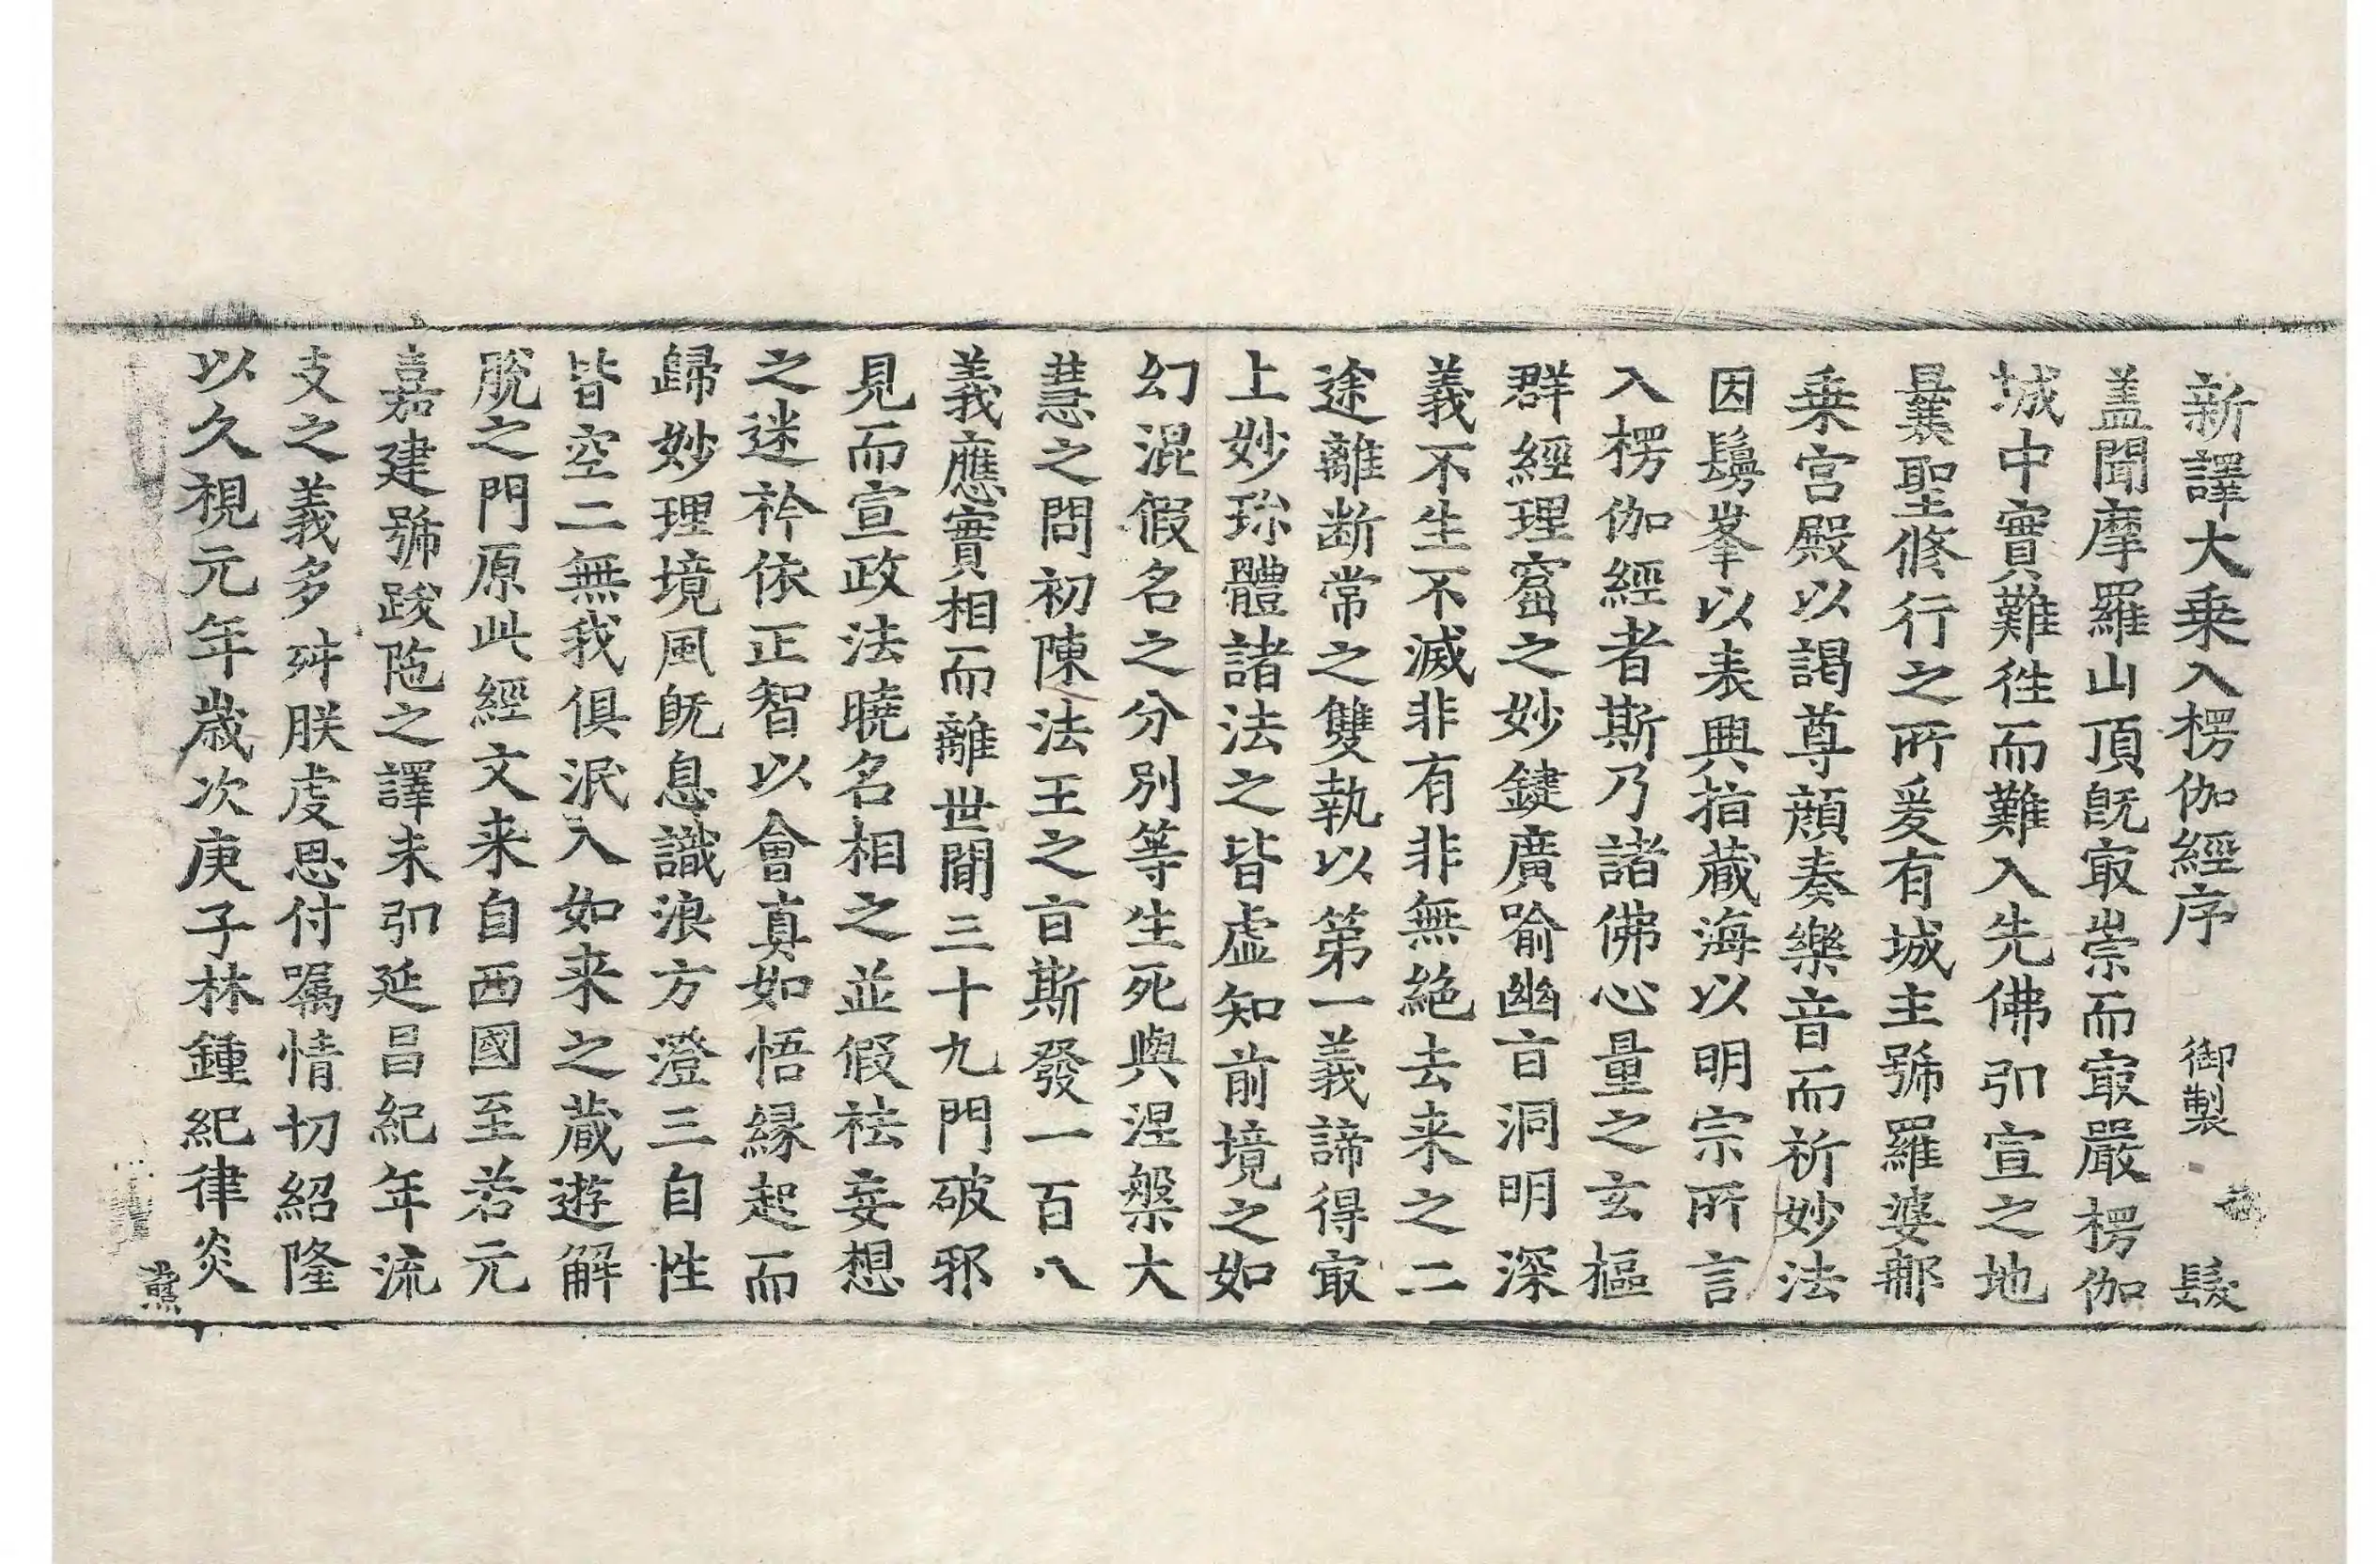 新譯大乗入楞伽經序 御製 髲
盖聞摩羅山頂旣㝡崇而㝡嚴楞伽
城中實難徃而難入先佛引宣之地
曩聖修行之所爰有城主號羅婆那
乗宫殿以謁尊顔奏樂音而祈妙法
因鬘峯以表興指蔵海以明宗所言
入楞伽經者斯乃諸佛心量之玄樞
群經理窟之妙鍵廣喻幽㫖洞明深
義不生不滅非有非無絶去来之二
途離断常之雙執以第一義諦得㝡
上妙珎體諸法之皆虚知前境之如
幻混假名之分别等生死與涅槃大
慧之問初陳法王之㫖斯發一百八
義應實相而離世間三十九門破邪
見而宣政法曉名相之並假祛妄想
之迷衿依正智以會真如悟縁起而
歸妙理境風旣息識浪方澄三自性
皆空二無我俱泯入如来之蔵遊解
脫之門原此經文来自西國至若元
嘉建號跋陁之譯未引延昌紀年流
支之義多舛朕虔思付囑情切紹隆
以久視元年歳次庚子林鍾紀律炎